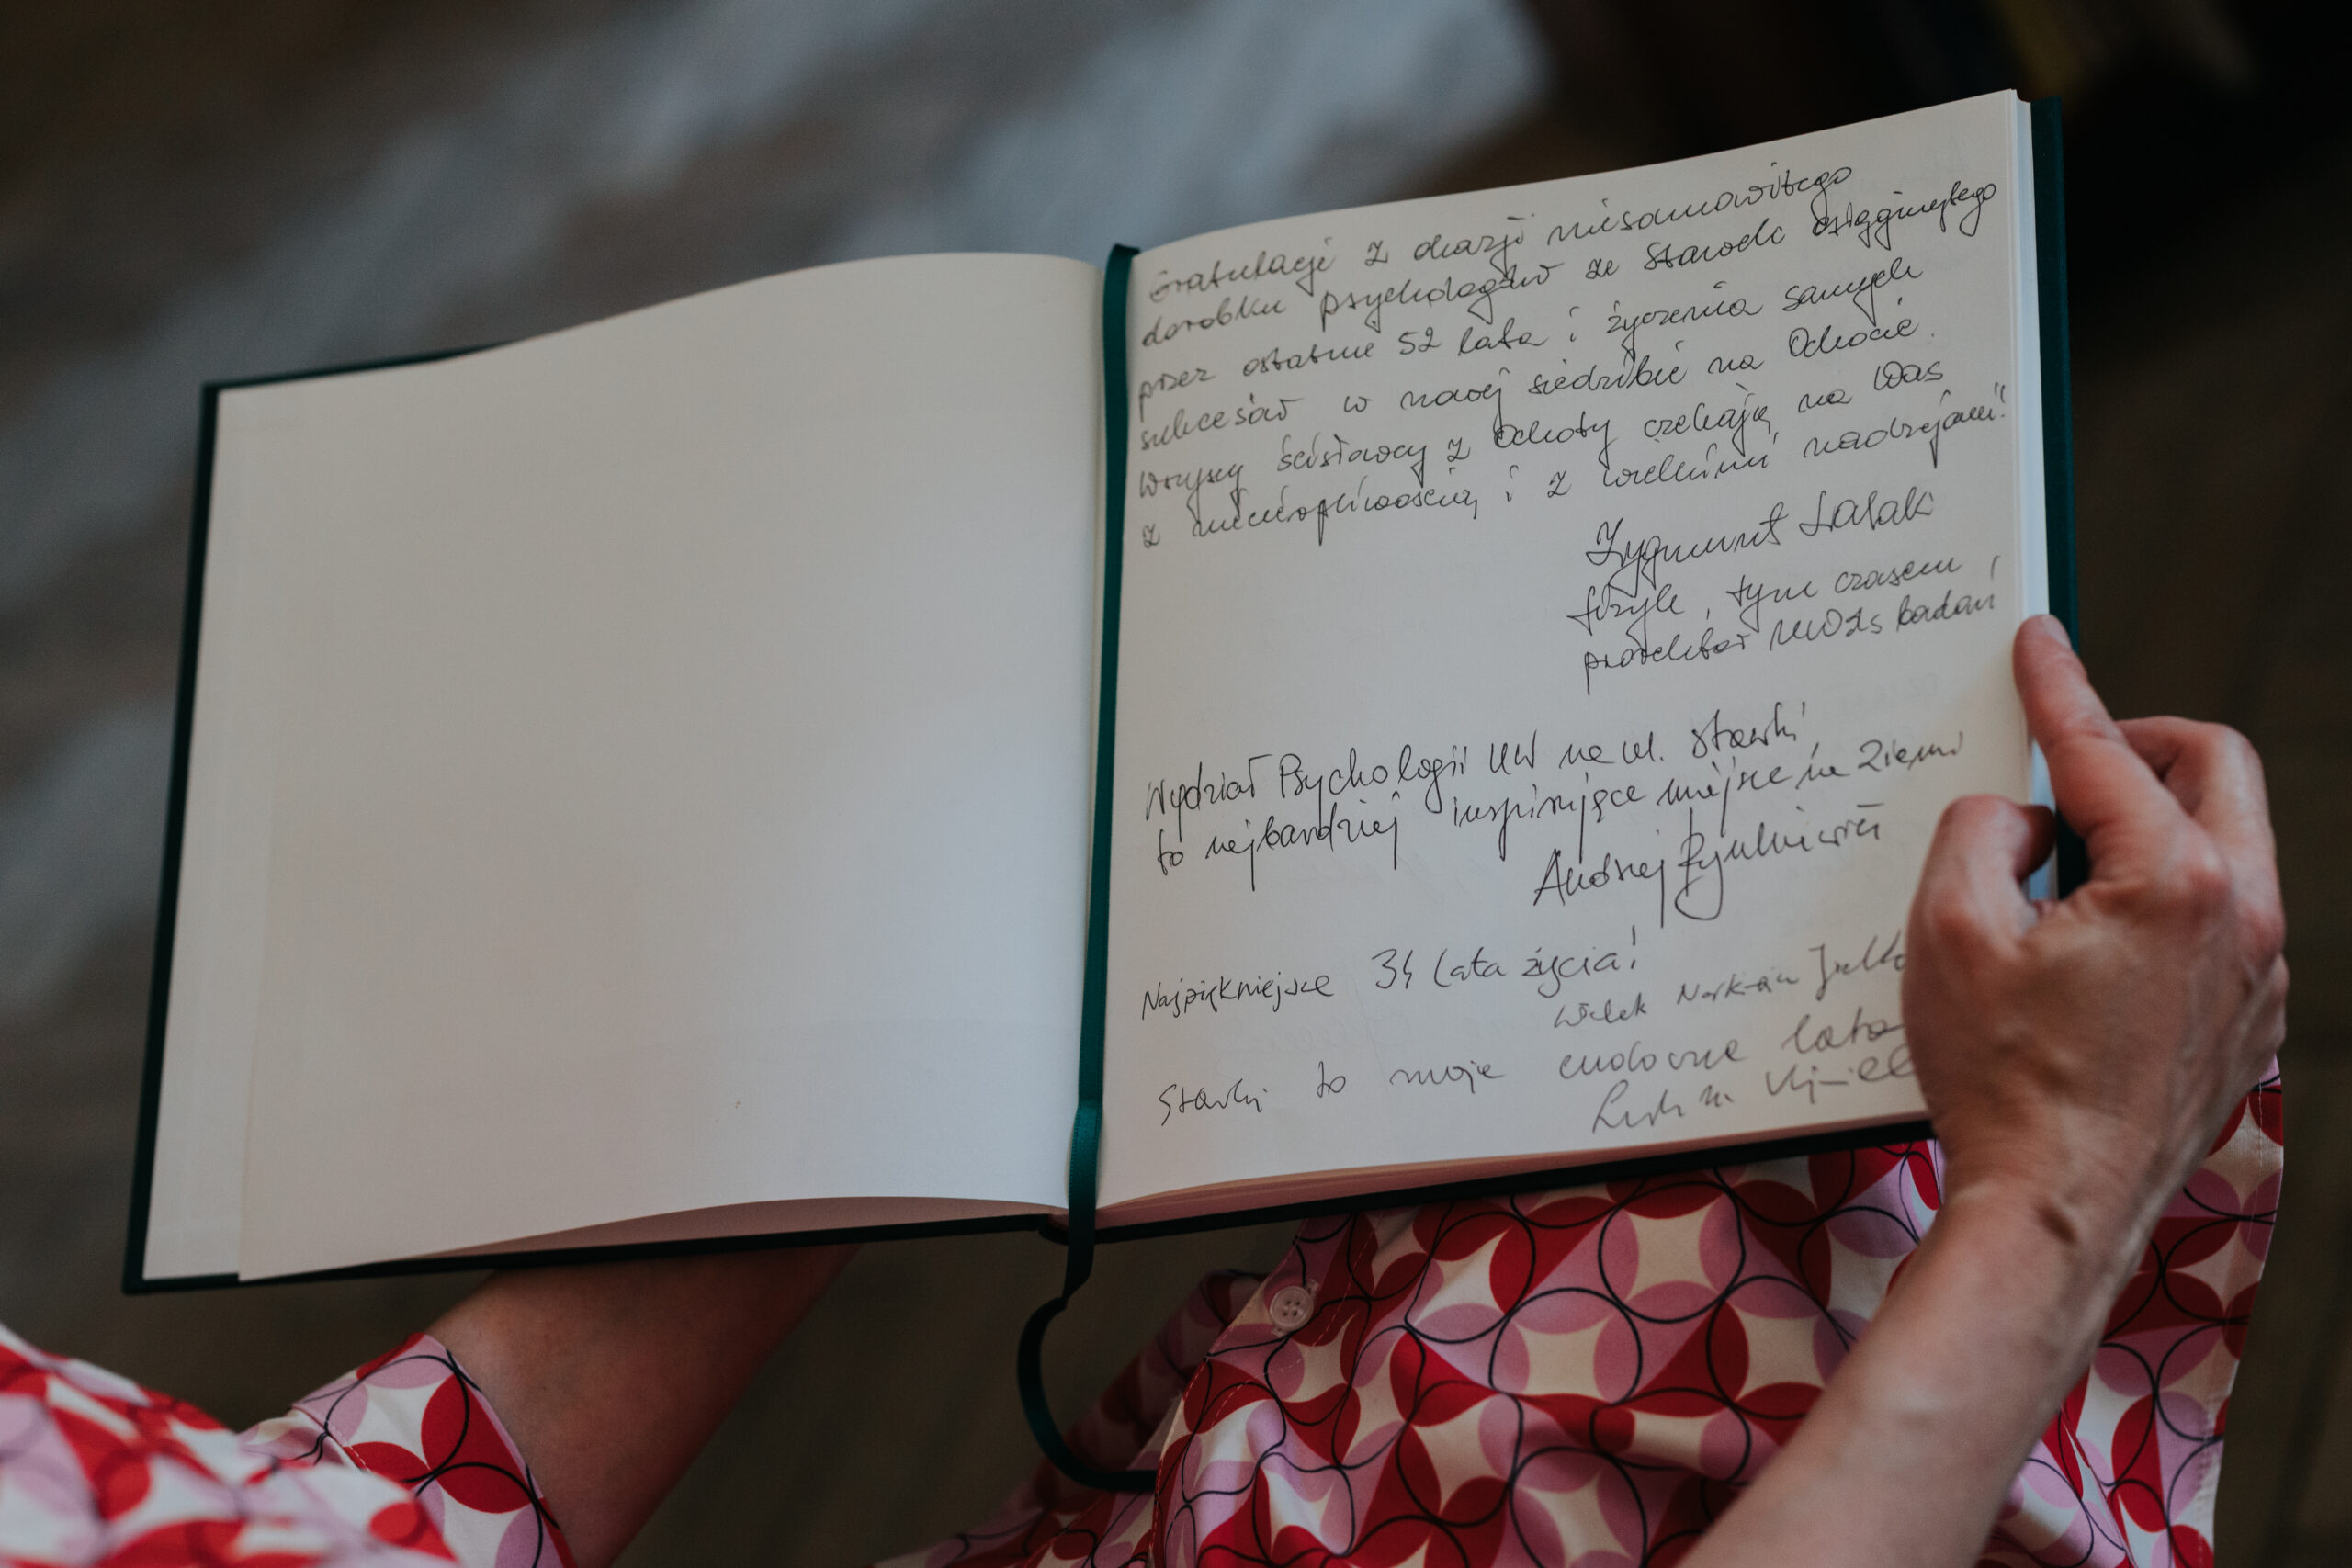 Gratulacje z okazji niesamowitego
dorobku psychologów ze Stawek osiągniętego
przez ostatnie 52 lata i życzenia samych
sukcesów w nowej siedzibie na Ochocie.
Wszyscy ściśłowcy z Ochoty czekają na Was
z niecierpliwością i z wielkimi nadziejami!
Zygmunt Lalak
fizyk, tym czasem
prorektor UW ds badań
Wydział Psychologii UW na ul. Stawki
to najbardziej inspirujące miejsce na Ziemi
Andrzej Rynkiewicz
Najpiękniejsze 34 lata życia!
Stawki to moje cudowne lata